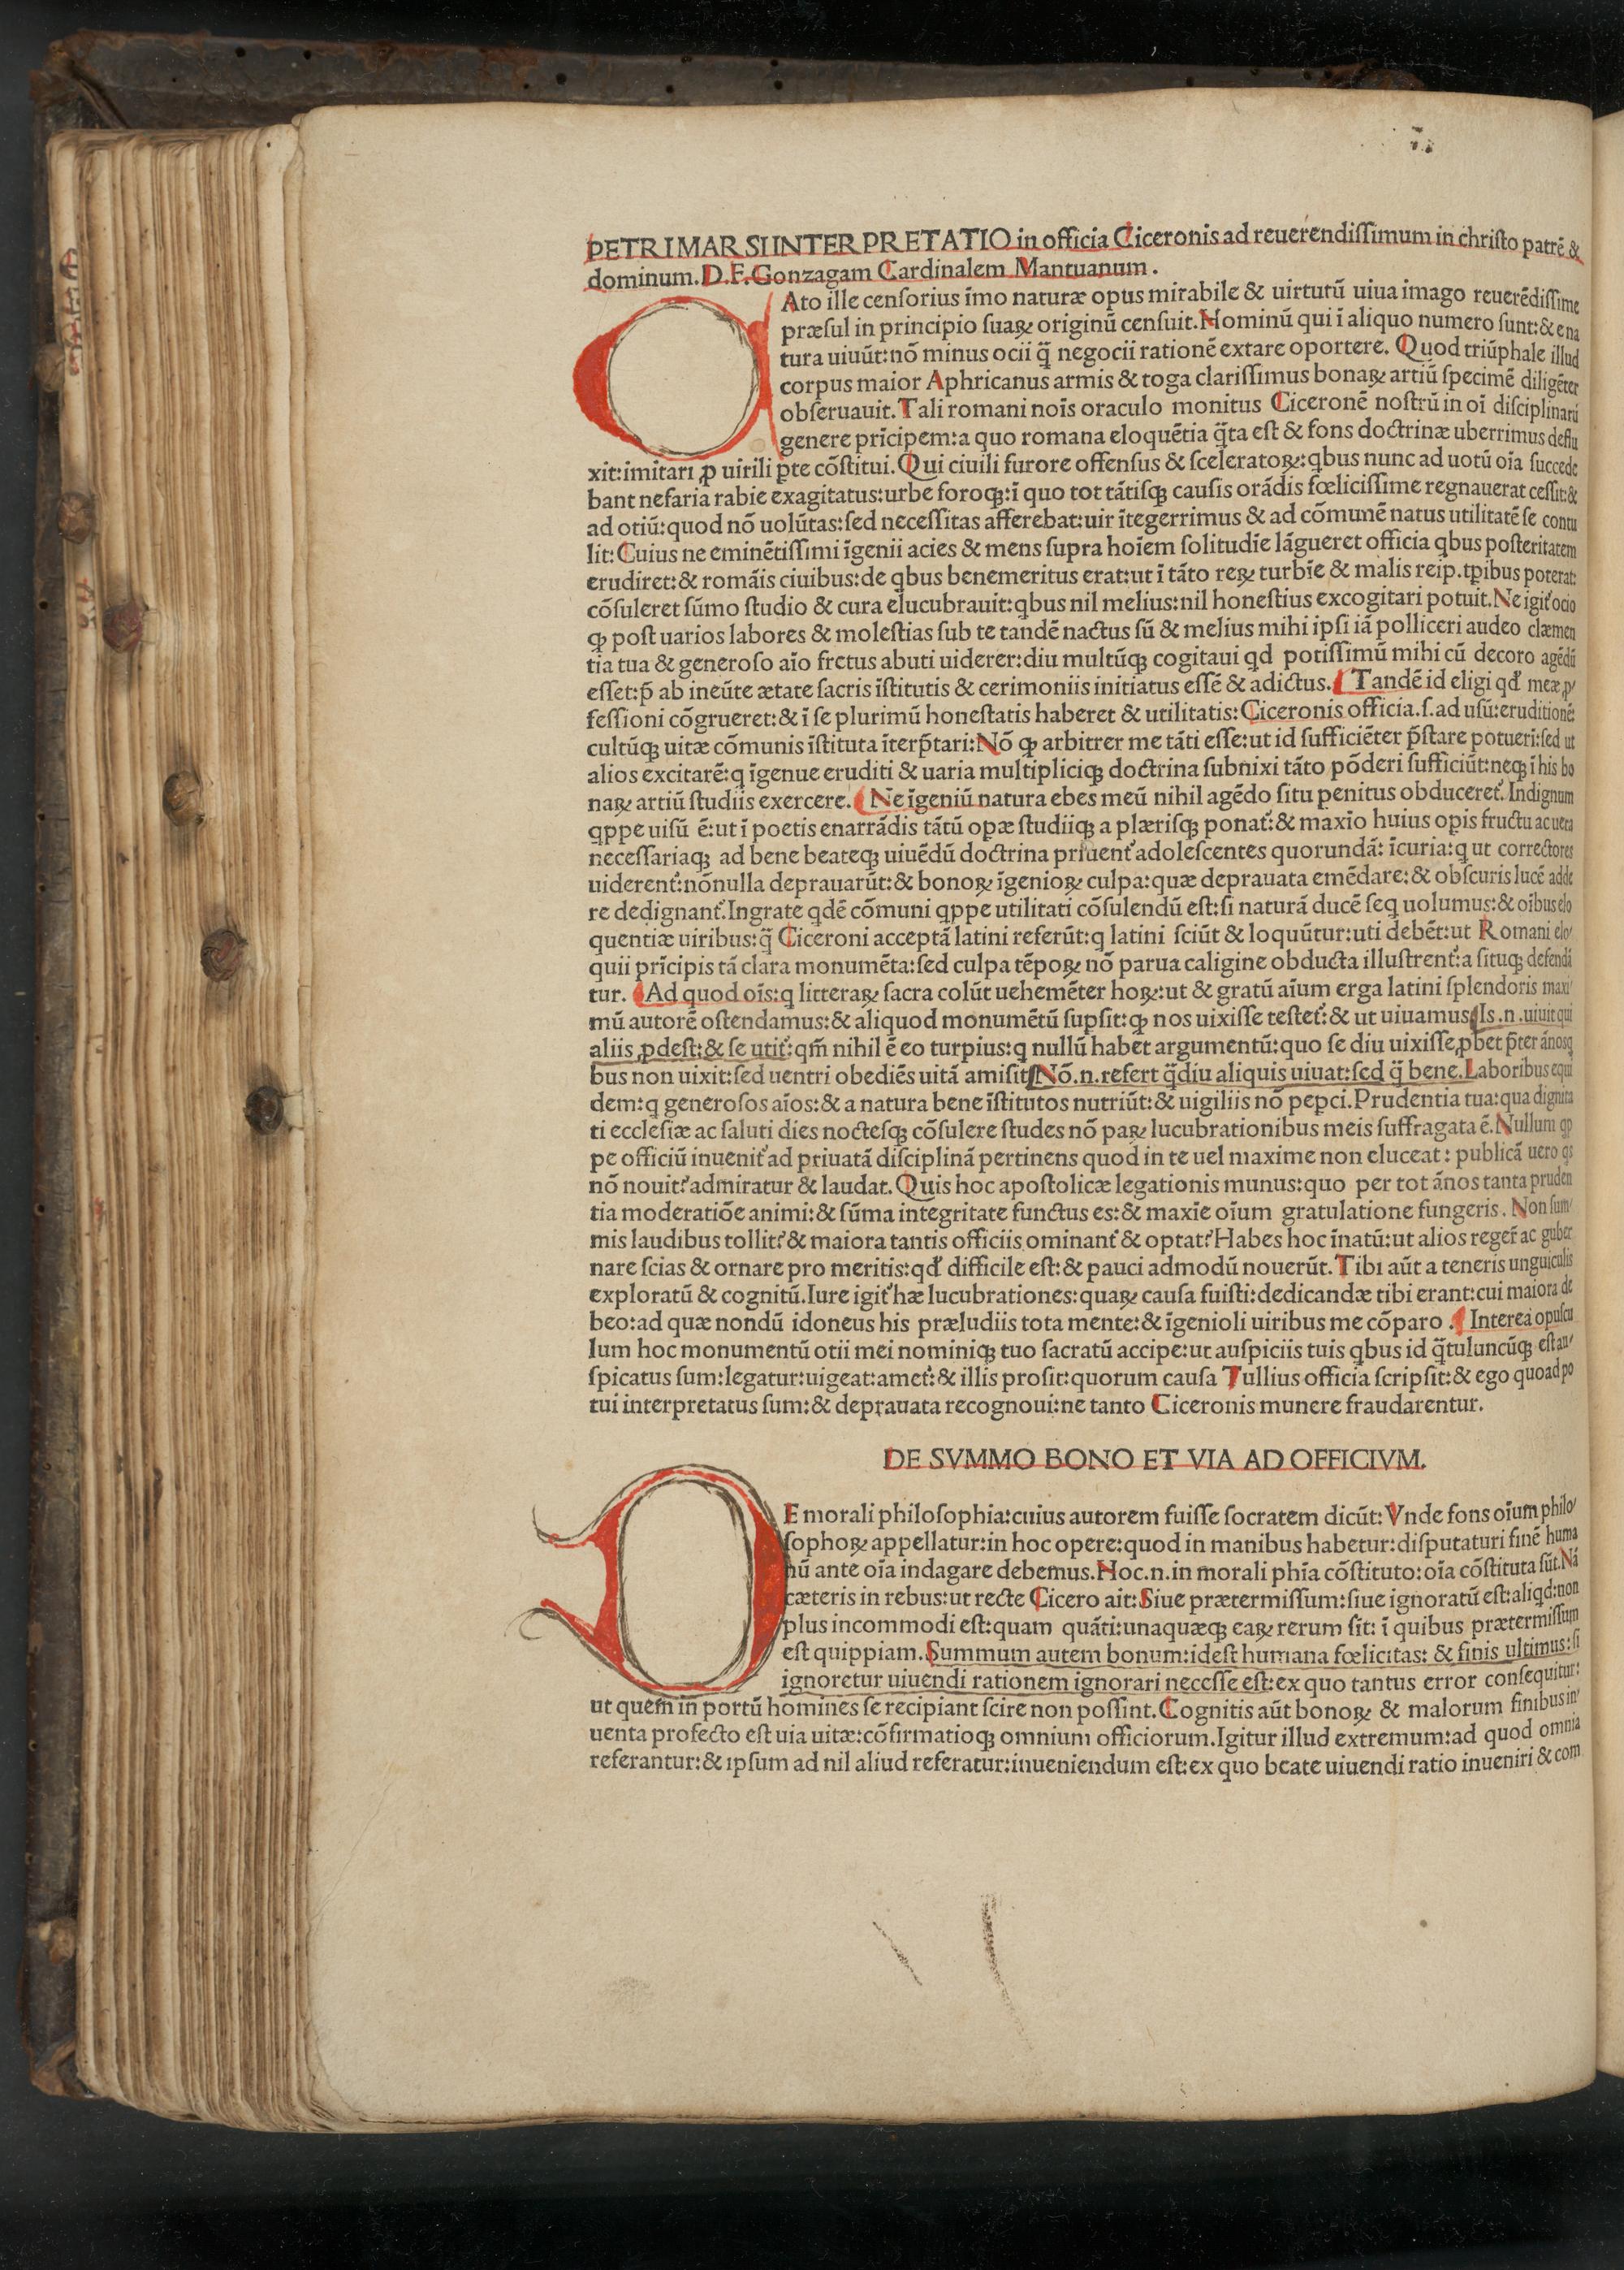 PETRI MARSI INTERPRETATIO in officia Ciceronis ad reuerendiſſimum in chriſto patrē &
dominum. D. F. Gonzagam Cardinalem Mantuanum.
CAto ille cenſorius īmo naturæ opus mirabile & uirtutū uiua imago reuerēdiſſime
præſul in principio ſuaꝝ originū cenſuit. Hominū qui ī aliquo numero ſunt: & e na
tura uiuūt: nō minus ocii q̄ negocii rationē extare oportere. Quod triūphale illud
corpus maior Aphricanus armis & toga clariſſimus bonaꝝ artiū ſpecimē diligēter
obſeruauit. Tali romani noīs oraculo monitus Ciceronē noſtrū in oī diſciplinarū
genere prīcipem: a quo romana eloquētia q̄ta eſt & fons doctrinæ uberrimus deflu
xit: imitari ꝓ uirili ꝑte cōſtitui. Qui ciuili furore offenſus & ſceleratoꝝ: qbus nunc ad uotū oīa ſuccede
bant nefaria rabie exagitatus: urbe foroqꝫ: ī quo tot tātiſqꝫ cauſis orādis fœliciſſime regnauerat ceſſit: &
ad otiū: quod nō uolūtas: ſed neceſſitas afferebat: uir ītegerrimus & ad cōmunē natus utilitatē ſe contu
lit: Cuius ne eminētiſſimi īgenii acies & mens ſupra hoīem ſolitudīe lāgueret officia qbus poſteritatem
erudiret: & romāis ciuibus: de qbus benemeritus erat: ut ī tāto reꝝ turbīe & malis reip. tꝑibus poterat:
cōſuleret ſūmo ſtudio & cura elucubrauit: qbus nil melius: nil honeſtius excogitari potuit. Ne igiť ocio
ꝙ poſt uarios labores & moleſtias ſub te tandē nactus ſū & melius mihi ipſi iā polliceri audeo clæmen
tia tua & generoſo aīo fretus abuti uiderer: diu multūqꝫ cogitaui qd potiſſimū mihi cū decoro agēdū
eſſet: p̄ ab ineūte ætate ſacris īſtitutis & cerimoniis initiatus eſſē & adictus. Tandē id eligi qď meæ ꝓ/
feſſioni cōgrueret: & ī ſe plurimū honeſtatis haberet & utilitatis: Ciceronis officia. ſ. ad uſū: eruditionē:
cultūqꝫ uitæ cōmunis īſtituta īterp̄tari: Nō ꝙ arbitrer me tāti eſſe: ut id ſufficiēter p̄ſtare potueri: ſed ut
alios excitarē: q īgenue eruditi & uaria multipliciqꝫ doctrina ſubnixi tāto pōderi ſufficiūt: neqꝫ ī his bo
naꝝ artiū ſtudiis exercere. Ne īgeniū natura ebes meū nihil agēdo ſitu penitus obducereť. Indignum
qppe uiſū ē: ut ī poetis enarrādis tātū opæ ſtudiiqꝫ a plæriſqꝫ ponať: & maxīo huius opis fructu ac uera
neceſſariaqꝫ ad bene beateqꝫ uiuēdū doctrina priuenť adoleſcentes quorundā: īcuria: q ut correctores
uiderenť: nōnulla deprauarūt: & bonoꝝ īgenioꝝ culpa: quæ deprauata emēdare: & obſcuris lucē adde
re dedignanť. Ingrate qdē cōmuni qppe utilitati cōſulendū eſt: ſi naturā ducē ſeq uolumus: & oībus elo
quentiæ uiribus: q̄ Ciceroni acceptā latini referūt: q latini ſciūt & loquūtur: uti debēt: ut Romani elo/
quii prīcipis tā clara monumēta: ſed culpa tēpoꝝ nō parua caligine obducta illuſtrenť: a ſituqꝫ defendā
tur. Ad quod oīs: q litteraꝝ ſacra colūt uehemēter hoꝝ: ut & gratū aīum erga latini ſplendoris maxi/
mū autorē oſtendamus: & aliquod monumētū ſupſit: ꝙ nos uixiſſe teſteť: & ut uiuamus. Is. n. uiuit qui
aliis ꝓdeſt: & ſe utiť: qm̄ nihil ē eo turpius: q nullū habet argumentū: quo ſe diu uixiſſe ꝓbet p̄ter ānosq
bus non uixit: ſed uentri obediēs uitā amiſit. Nō. n. refert q̄diu aliquis uiuat: ſed q̄ bene. Laboribus equi
dem: q generoſos aīos: & a natura bene īſtitutos nutriūt: & uigiliis nō pepci. Prudentia tua: qua dignita
ti eccleſiæ ac ſaluti dies nocteſqꝫ cōſulere ſtudes nō paꝝ lucubrationibus meis ſuffragata ē. Nullum qp
pe officiū inueniť ad priuatā diſciplinā pertinens quod in te uel maxime non eluceat: publicā uero qs
nō nouit? admiratur & laudat. Quis hoc apoſtolicæ legationis munus: quo per tot ānos tanta pruden
tia moderatiōe animi: & ſūma integritate functus es: & maxīe oīum gratulatione fungeris. Non ſum/
mis laudibus tollit? & maiora tantis officiis ominanť & optat? Habes hoc īnatū: ut alios regeř ac guber
nare ſcias & ornare pro meritis: qď difficile eſt: & pauci admodū nouerūt. Tibi aūt a teneris unguiculis
exploratū & cognitū. Iure igiť hæ lucubrationes: quaꝝ cauſa fuiſti: dedicandæ tibi erant: cui maiora de
beo: ad quæ nondū idoneus his præludiis tota mente: & īgenioli uiribus me cōparo. Interea opuſcu
lum hoc monumentū otii mei nominiqꝫ tuo ſacratū accipe: ut auſpiciis tuis qbus id q̄tuluncūqꝫ eſt au/
ſpicatus ſum: legatur: uigeat: ameť: & illis proſit: quorum cauſa Tullius officia ſcripſit: & ego quoad po
tui interpretatus ſum: & deprauata recognoui: ne tanto Ciceronis munere fraudarentur.
DE SVMMO BONO ET VIA AD OFFICIVM.
DE morali philoſophia: cuius autorem fuiſſe ſocratem dicūt: Vnde fons oīum philo/
ſophoꝝ appellatur: in hoc opere: quod in manibus habetur: diſputaturi finē huma
nū ante oīa indagare debemus. Hoc. n. in morali phīa cōſtituto: oīa cōſtituta ſūt. Nā
cæteris in rebus: ut recte Cicero ait: Siue prætermiſſum: ſiue ignoratū eſt: aliqd: non
plus incommodi eſt: quam quāti: unaquæqꝫ eaꝝ rerum ſit: ī quibus prætermiſſum
eſt quippiam. Summum autem bonum: ideſt humana fœlicitas: & finis ultimus: ſi
ignoretur uiuendi rationem ignorari neceſſe eſt: ex quo tantus error conſequitur:
ut quem in portū homines ſe recipiant ſcire non poſſint. Cognitis aūt bonoꝝ & malorum finibus in/
uenta profecto eſt uia uitæ: cōfirmatioqꝫ omnium officiorum. Igitur illud extremum: ad quod omnia
referantur: & ipſum ad nil aliud referatur: inueniendum eſt: ex quo beate uiuendi ratio inueniri & com